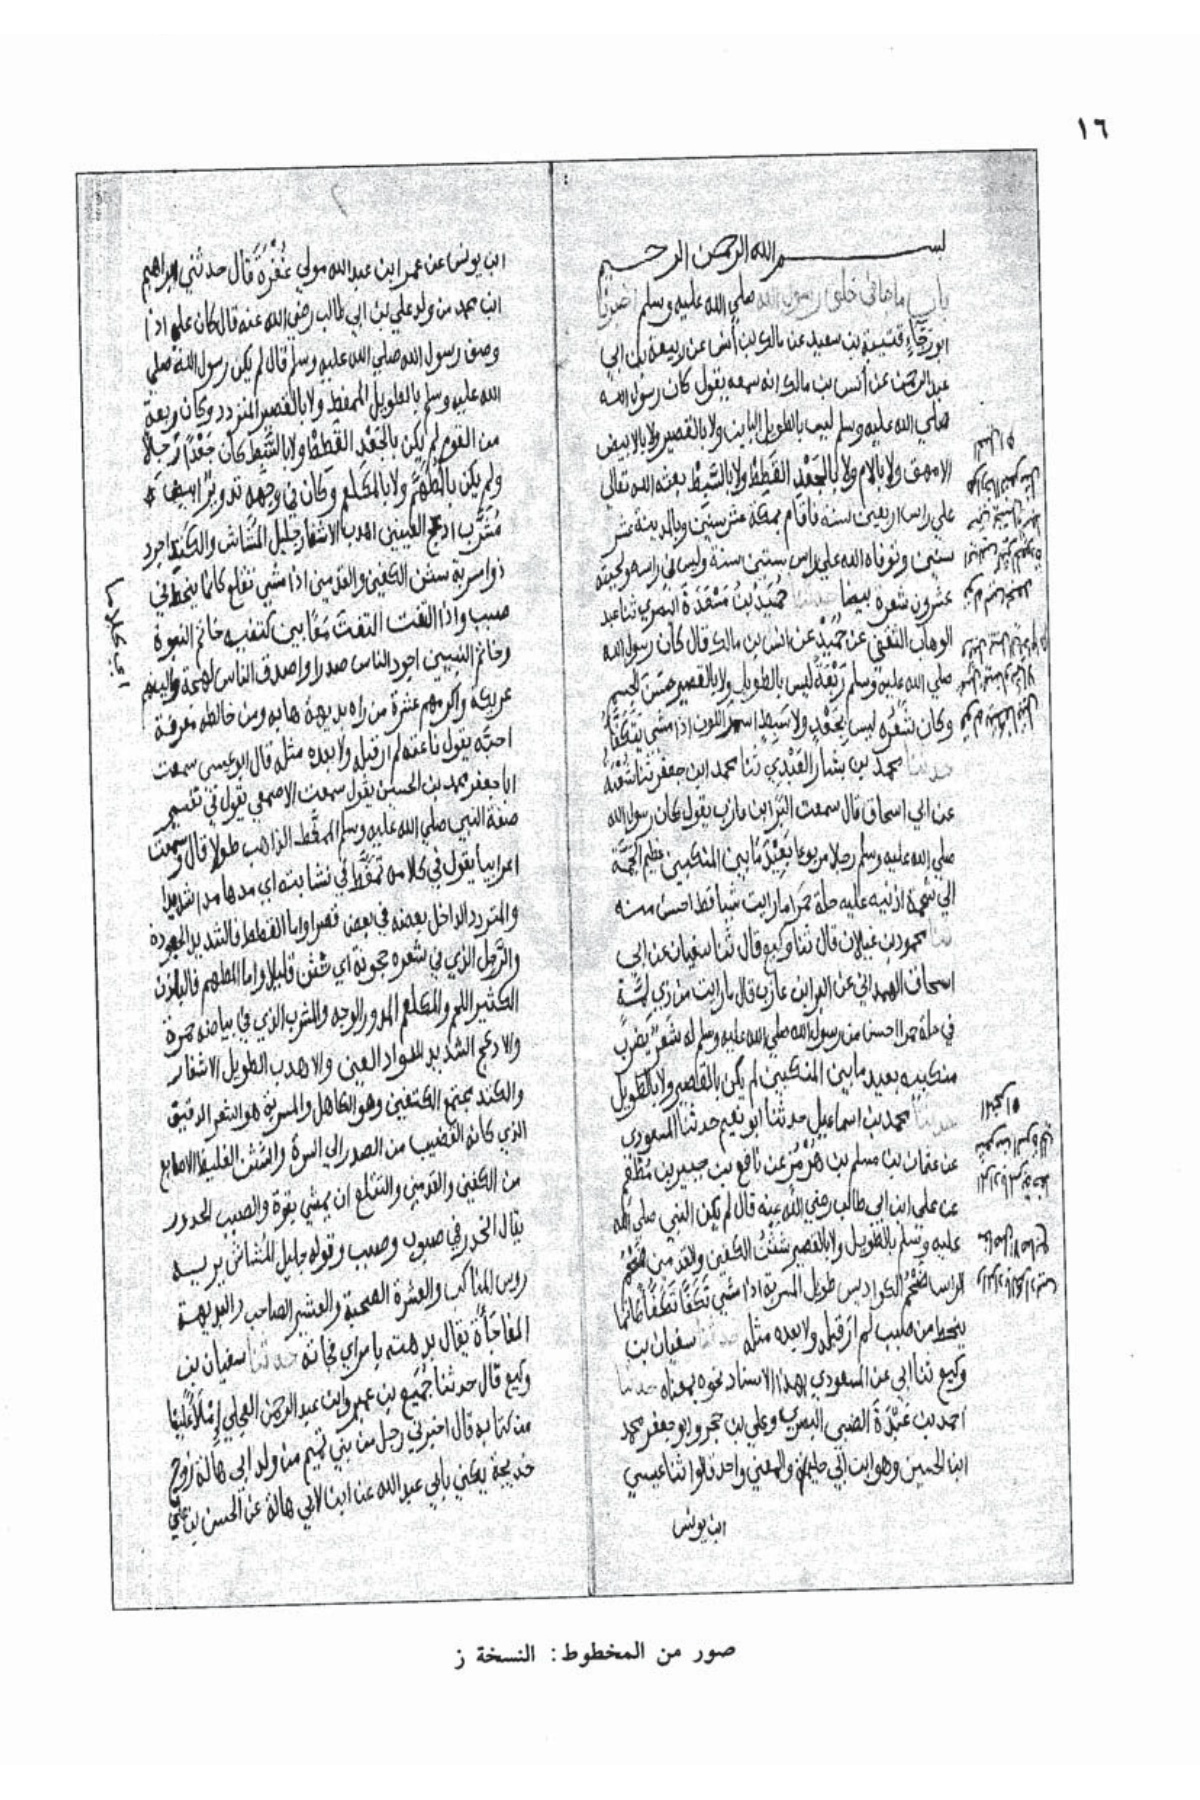 ١٦
بســـم الله الرحمن الرحيم
باب ما جا في خلق رسول الله صلي الله عليه وسلم اخبرنا
ابو رجاء قتيبة بن سعيد عن مالك بن أنس عن ربيعة بن ابي
عبد الرحمن عن أنس بن مالك انه سمعه يقول كان رسول الله
صلي الله عليه وسلم ليس بالطويل الباين ولا بالقصير ولا بالابيض
الامهق ولا بالادم ولا بالجعد القطط ولا بالسبط بعثه الله تعالي
علي راس اربعين سنه فاقام بمكة عشر سنين وبالمدينة عشر
سنين وتوفاه الله علي راس ستين سنة وليس في راسه ولحيته
عشرون شعره بيضا حدثنا حميد بن مسعدة البصري ثنا عبد
الوهاب الثقفي عن حميد عن انس بن مالك قال كان رسول الله
صلي الله عليه وسلم ربعة ليس بالطويل ولا بالقصير حسن الجسم
وكان شعره ليس بجعد ولا سبط اسمر اللون اذا مشي يتكفا
حدثنا محمد بن بشار العبدي ثنا محمد ابن جعفر ثنا شعبة
عن ابي اسحاق قال سمعت البرا ابن عازب يقول كان رسول الله
صلي الله عليه وسلم رجلا مربوعا بعيد ما بين المنكبين عظيم الجمة
الي شحمة اذنيه عليه حلة حمرا ما رايت شيا قط احسن منه
ثنا محمود بن غيلان قال ثنا وكيع قال ثنا سفيان عن ابي
اسحاق الهمداني عن البرا ابن عازب قال ما رايت من ذي لمة
في حلة حمرا احسن من رسول الله صلي الله عليه وسلم له شعر يضرب
منكبيه بعيد ما بين المنكبين لم يكن بالقصير ولا بالطويل
حدثنا محمد بن اسماعيل حدثنا ابو نعيم حدثنا المسعودي
عن عثمان بن مسلم بن هرمز عن نافع بن جبير بن مطعم
عن علي ابن ابي طالب رضي الله عنه قال لم يكن النبي صلي الله
عليه وسلم بالطويل ولا بالقصير شثن الكفين والقدمين ضخم
الراس ضخم الكراديس طويل المسربة اذا مشي تكفا تكفؤا كانما
ينحط من صبب لم ار قبله ولا بعده مثله حدثنا سفيان بن
وكيع ثنا ابي عن المسعودي بهذا الاسناد نحوه بمعناه حدثنا
احمد بن عبدة الضبي البصري وعلي بن حجر وابو جعفر محمد
ابن الحسين وهو ابن ابي حليمة والمعني واحد قالوا ثنا عيسي
ابن يونس
ابن يونس عن عمر ابن عبد الله مولي غفرة قال حدثني ابراهيم
ابن محمد من ولد علي بن ابي طالب رضي الله عنه قال كان علي اذا
وصف رسول الله صلي الله عليه وسلم قال لم يكن رسول الله صلي
الله عليه وسلم بالطويل الممغط ولا بالقصير المتردد وكان ربعة
من القوم لم يكن بالجعد القطط ولا بالسبط كان جعدا رجلا
ولم يكن بالمطهم ولا بالمكلثم وكان في وجهه تدوير ابيض
مشرب ادعج العينين اهدب الاشفار جليل المشاش والكتد اجرد
ذو مسربة شثن الكفين والقدمين اذا مشي تقلع كانما ينحط في
صبب واذا التفت التفت معا بين كتفيه خاتم النبوة
وخاتم النبيين اجود الناس صدرا واصدق الناس لهجة والينهم
عريكة واكرمهم عشرة من راه بديهة هابه ومن خالطه معرفة
احبه يقول ناعته لم ار قبله ولا بعده مثله قال ابو عيسي سمعت
ابا جعفر محمد بن الحسين يقول سمعت الاصمعي يقول في تفسير
صفة النبي صلي الله عليه وسلم الممغط الذاهب طولا قال وسمعت
اعرابيا يقول في كلامه تمغط في نشابته اي مدها مدا شديدا
والمتردد الداخل بعضه في بعض قصرا واما القطط فالشديد الجعودة
والرجل الذي في شعره حجونة اي تثن قليلا واما المطهم فالبادن
الكثير اللحم والمكلثم المدور الوجه والمشرب الذي في بياضه حمرة
والادعج الشديد السواد العين والاهدب الطويل الاشفار
والكتد مجتمع الكتفين وهو الكاهل والمسربة هو الشعر الدقيق
الذي كانه القضيب من الصدر الي السرة والشثن الغليظ الاصابع
من الكفين والقدمين والتقلع ان يمشي بقوة والصبب الحدور
يقال انحدر في صبوب وصبب وقوله جليل المشاش يريد
روس المناكب والعشرة الصحبة والعشير الصاحب والبديهة
المفاجأة يقال بدهته بامر اي فجأته حدثنا سفيان بن
وكيع قال حدثنا جميع بن عمير ابن عبد الرحمن العجلي إملاء علينا
من كتابه قال اخبرني رجل من بني تميم من ولد ابي هالة زوج
خديجة يكني بابي عبد الله عن ابن لابي هالة عن الحسن بن علي
صور من المخطوط: النسخة ز